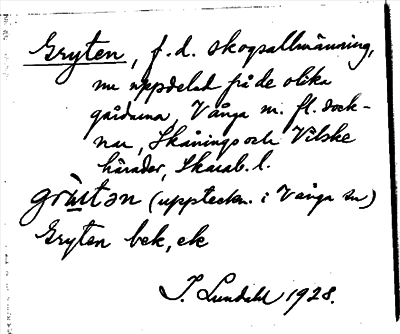 Gryten, f. d. skogsallmänning,
nu uppdelad på de olika
gårdarna, Vånga m. fl. sock-
nar, Skånings och Vilske
härader, Skarab. l.
grùtən (uppteckn. i Vånga sn)
Gryten bek, ek
I. Lundahl 1928.